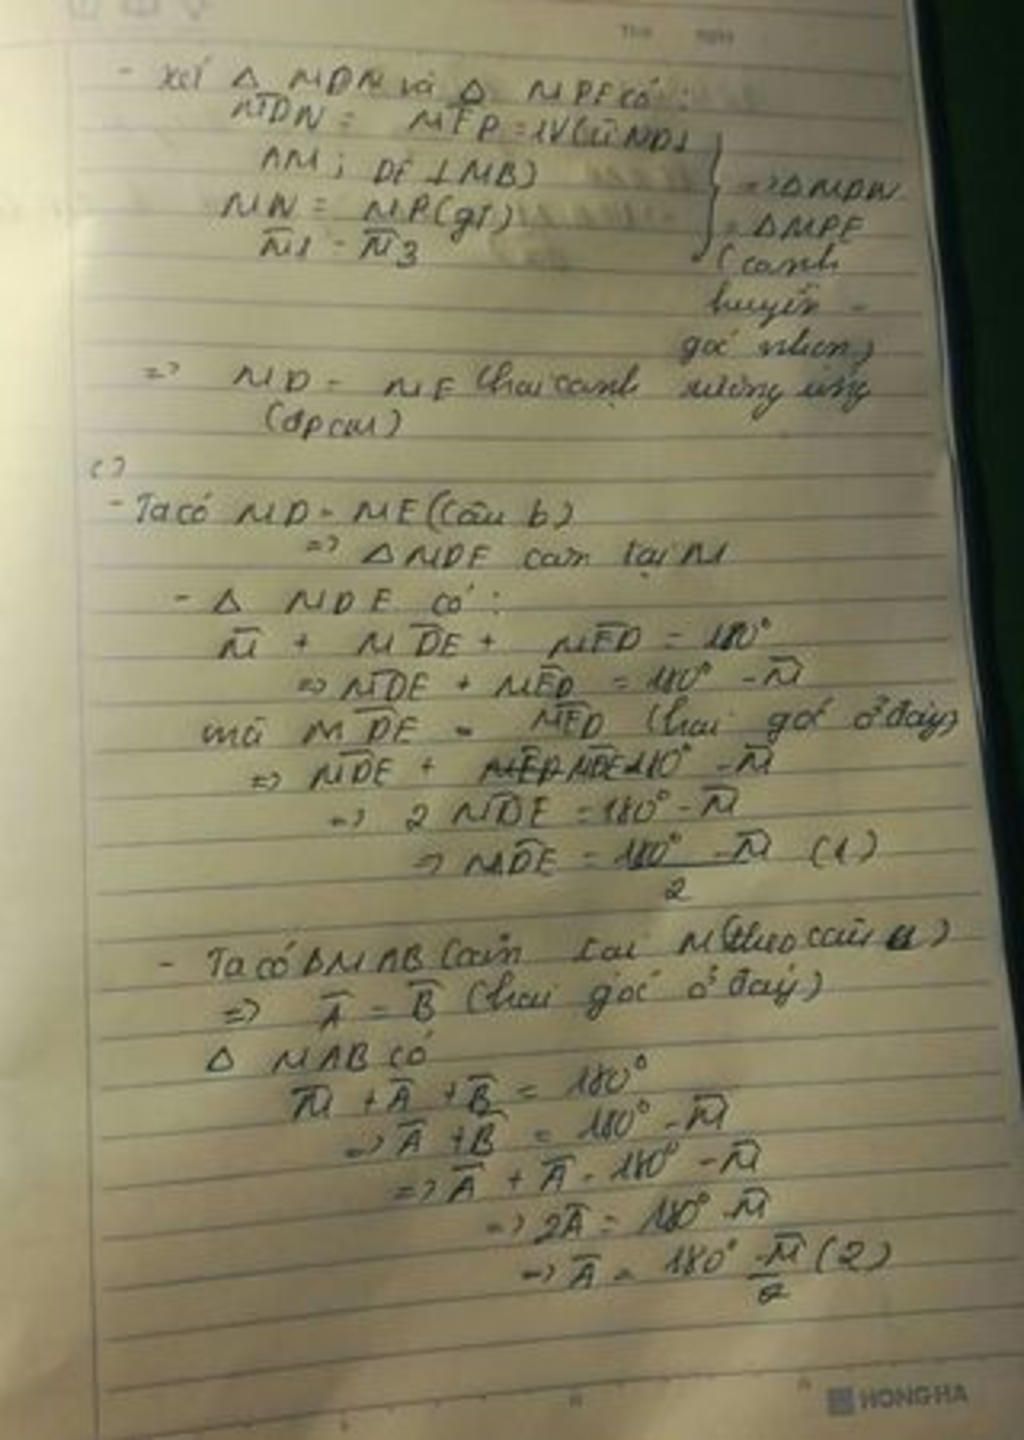 Thứ Ngày
- Xét Δ MDN và Δ MPE có:
MDN = MEP = 1V (vì ND⊥
AM; DE ⊥ MB)
MN = MP (gt)
M1 = M3
=> Δ MDN
= Δ MPE
(cạnh
huyền -
góc nhọn)
=> MD = ME (hai cạnh tương ứng
(đpcm)
c)
- Ta có MD = ME (Câu b)
=> Δ MDE cân tại M
- Δ MDE có:
M + MDE + MED = 180°
=> MDE + MED = 180° - M
mà MDE = MED (hai góc ở đáy)
=> MDE + MDE = 180° - M
=> 2 MDE = 180° - M
=> MDE = 180° - M (1)
2
- Ta có Δ MAB cân tại M (theo câu a)
=> A = B (hai góc ở đáy)
Δ MAB có
M + A + B = 180°
=> A + B = 180° - M
=> A + A = 180° - M
=> 2A = 180° - M
=> A = 180° - M (2)
2
HONG HA